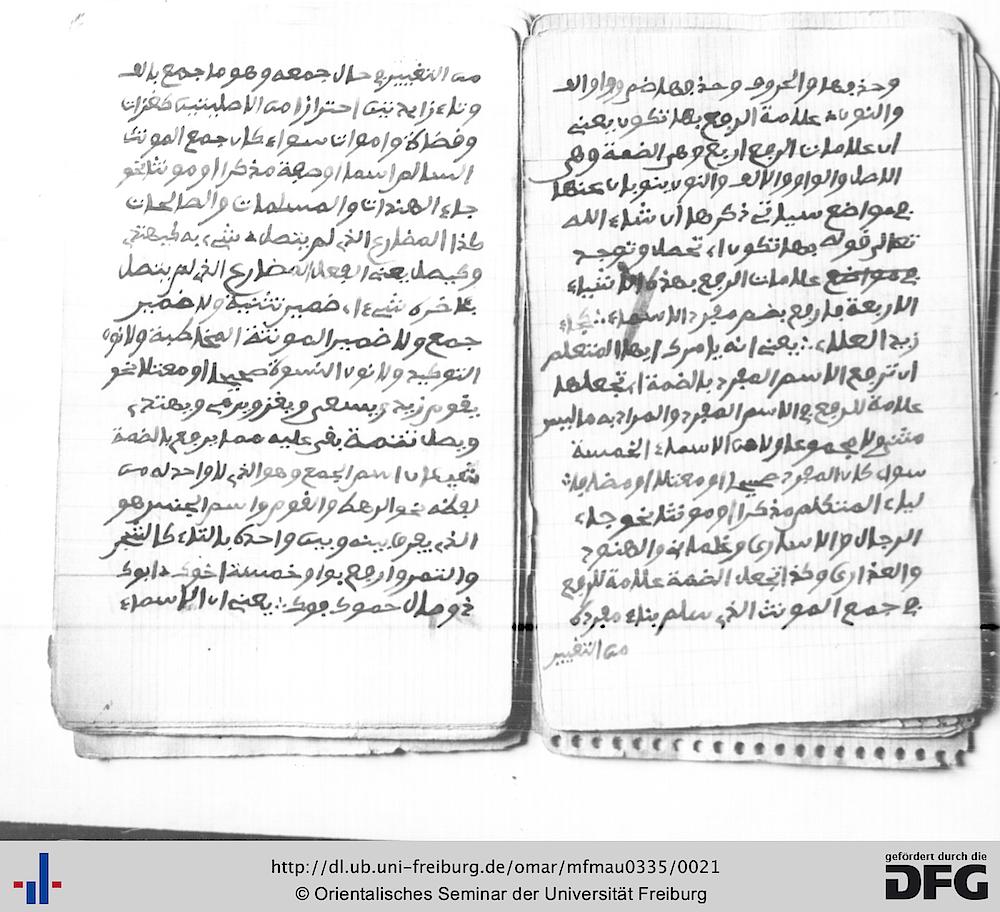 وحذفها والحروف وحذفها ضم وواو الف
والنون علامة الرفع بها تكون يعني
ان علامات الرفع اربع وهي الضمة وهي
الاصل والواو والالف والنون ينوبان عنها
في مواضع سياتي ذكرها ان شاء الله
تعالى قوله بها تكون اي تحصل وتوجد
في مواضع علامات الرفع بهذه الاشياء
الاربعة فارفع بضم مفرد الاسماء كجاء
زيد العلاء يعني انه يامرك ايها المتعلم
ان ترفع الاسم المفرد بالضمة اي تجعلها
علامة للرفع في الاسم المفرد والمراد به ما ليس
مثنى ولا مجموعا ولا من الاسماء الخمسة
سواء كان المفرد صحيحا او معتلا او مضافا
لياء المتكلم مذكرا او مونثا نحو جاء
الرجال والاسارى وغلمانه والهنود
والعذارى وكذا تجعل الضمة علامة للرفع
في جمع المونث الذي سلم بناء مفرده
من التغيير
من التغيير في حال جمعه وهو ما جمع بالف
وتاء زايدتين احترازا من الاصليتين كغزات
وقضاة واموات سواء كان جمع المونث
السالم اسما او صفة مذكرا او مونثا نحو
جاء الهندات والمسلمات والصالحات
كذا المضارع الذي لم يتصل شيء به كيهتدي
وكيصل يعني الفعل المضارع الذي لم يتصل
باخره شيء اي ضمير تثنية ولا ضمير
جمع ولا ضمير المونثة المخاطبة ولا نون
التوكيد ولا نون النسوة صحيحا او معتلا نحو
يقوم زيد ويسعى ويغزو ويرمي ويهتدي
ويصل تتمة بقي عليه مما يرفع بالضمة
شيئان اسم الجمع وهو الذي لا واحد له من
لفظه نحو الرهط والقوم واسم الجنس هو
الذي يفرق بينه وبين واحده بالتاء كالشجر
والتمر وارفع بواو خمسة اخوك ابوك
ذو مال حموك فوك يعني ان الاسماء
http://dl.ub.uni-freiburg.de/omar/mfmau0335/0021
© Orientalisches Seminar der Universität Freiburg
gefördert durch die
DFG